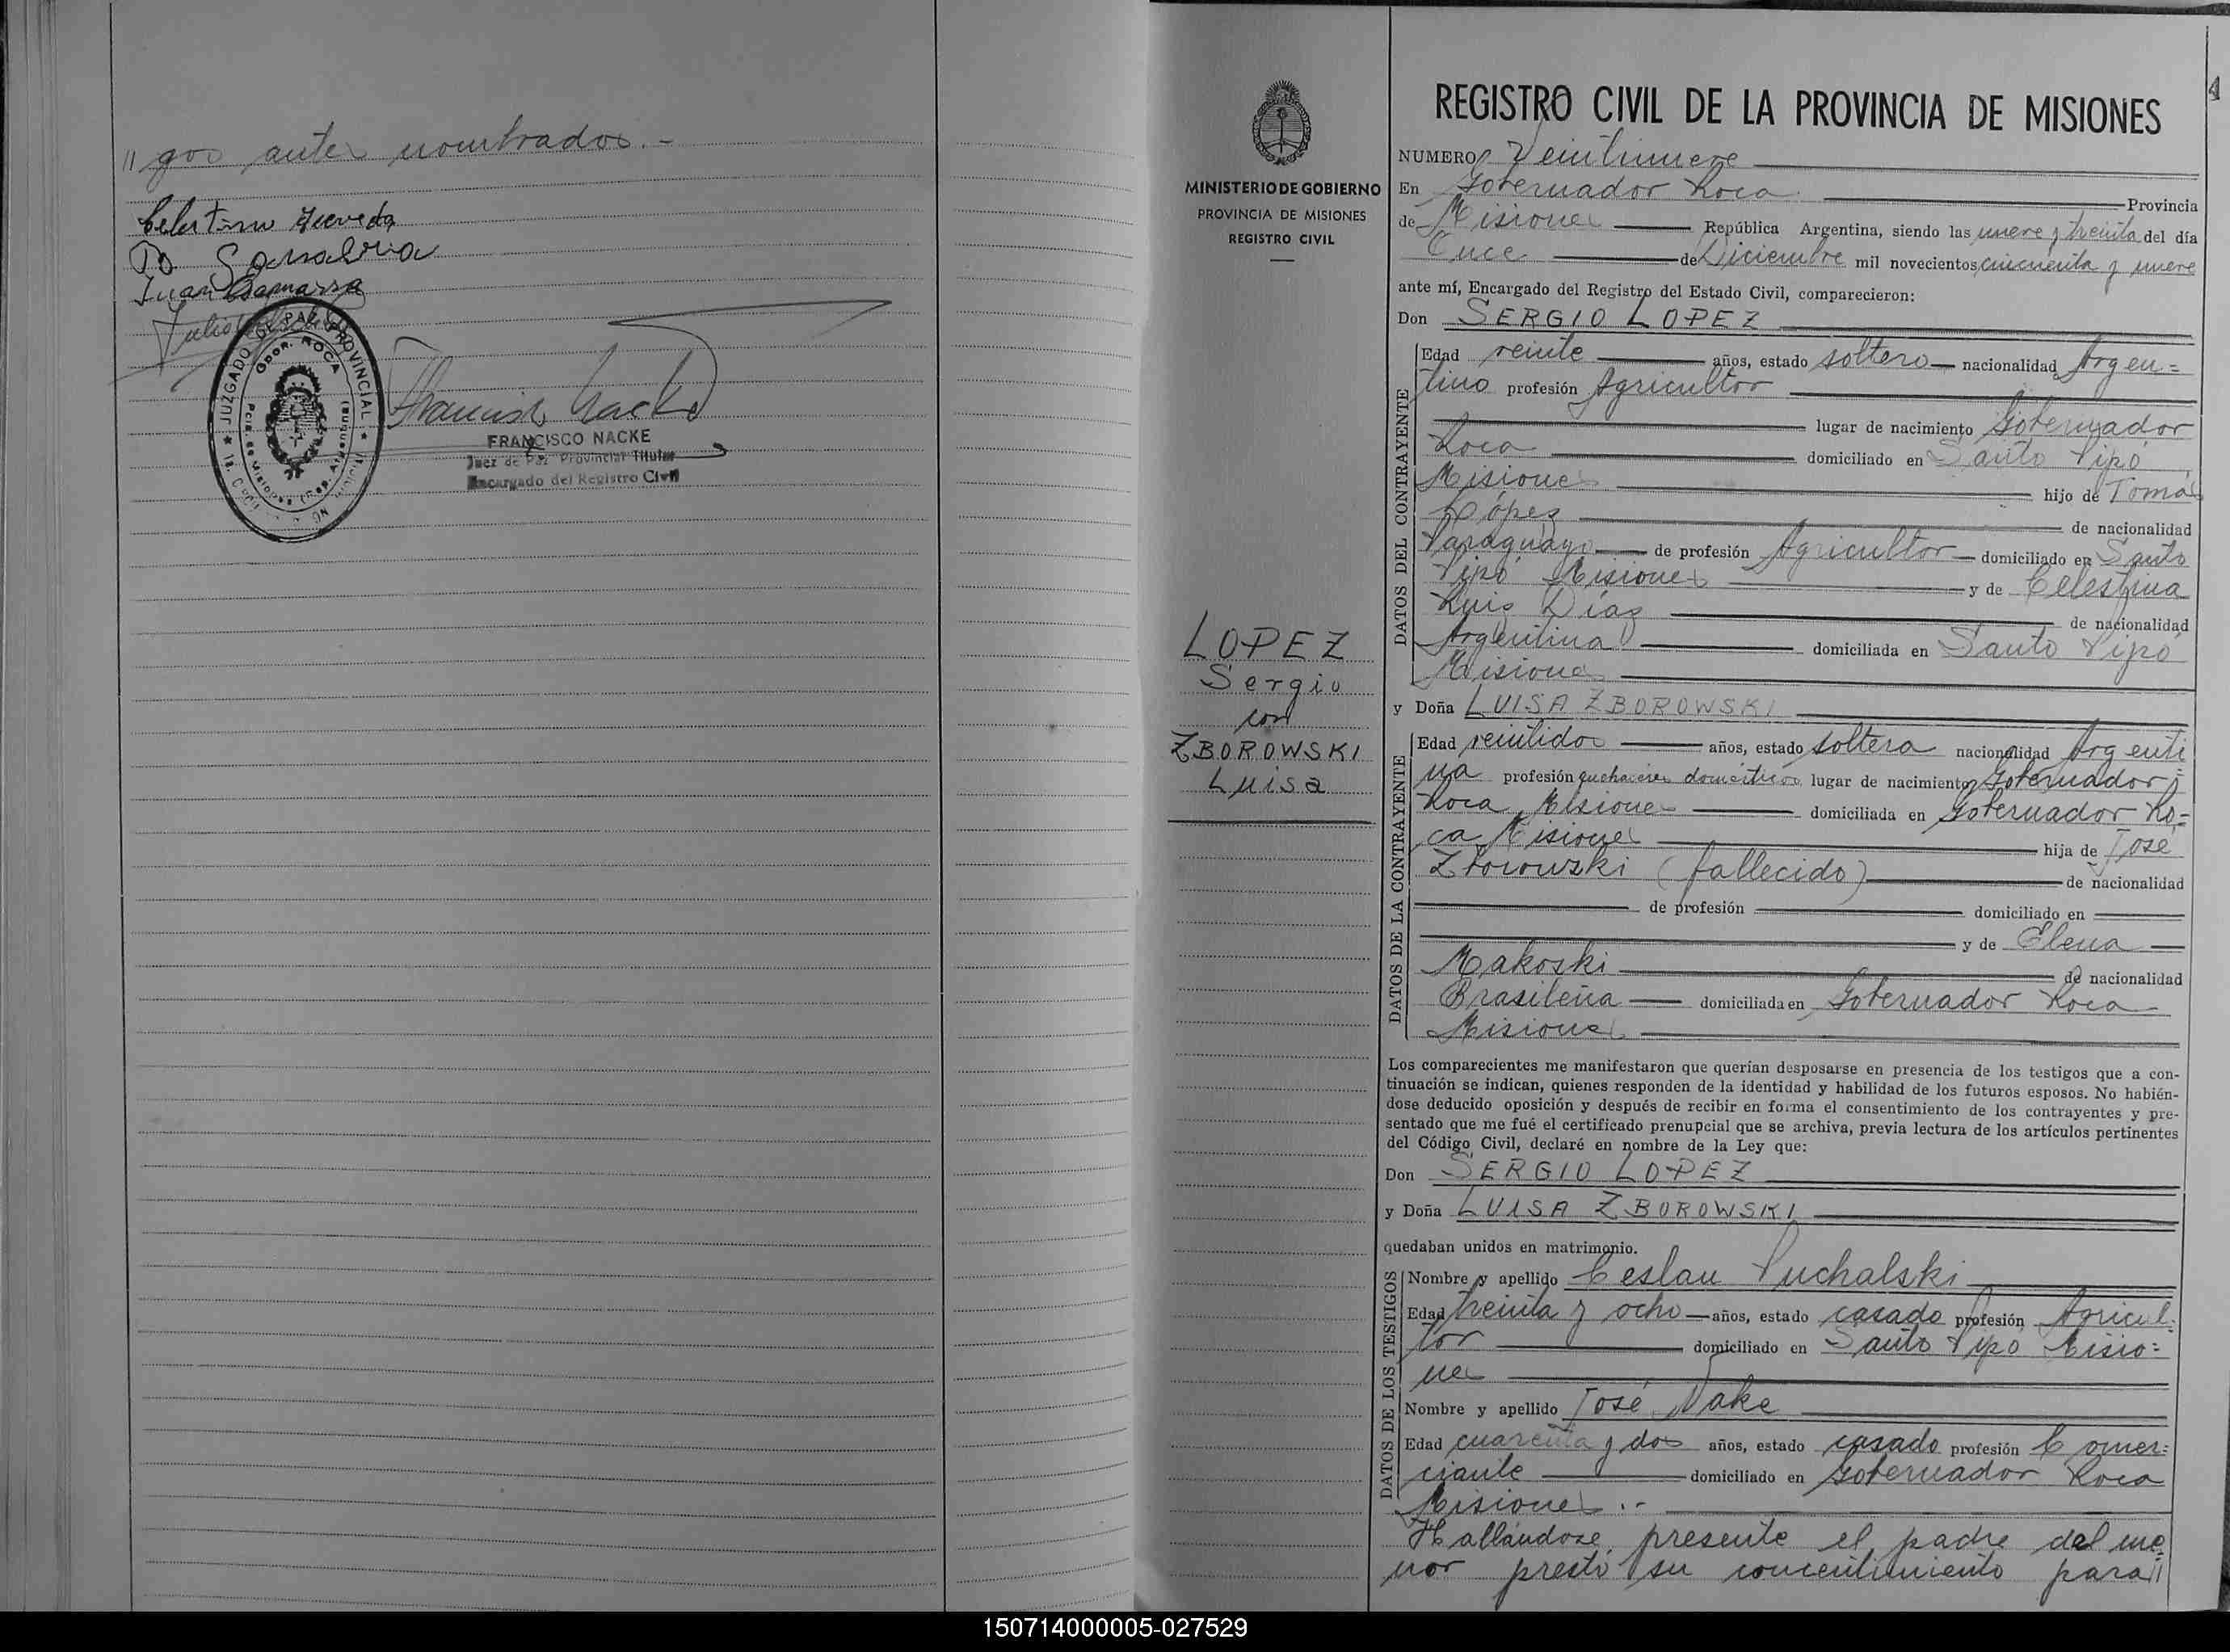 // gos antes nombrados.-
Celestino
Juan
JUZGADO DE PAZ PROVINCIAL
GDOR. ROCA
Pcia. de Misiones (Rep. Argentina)
FRANCISCO NACKE
Juez de Paz Provincial Titular
Encargado del Registro Civil
MINISTERIO DE GOBIERNO
PROVINCIA DE MISIONES
REGISTRO CIVIL
LOPEZ
Sergio
con
ZBOROWSKI
Luisa
4
REGISTRO CIVIL DE LA PROVINCIA DE MISIONES
NUMERO Veintinueve
En Gobernador Roca Provincia
de Misiones República Argentina, siendo las nueve y treinta del día
Once de Diciembre mil novecientos cincuenta y nueve
ante mí, Encargado del Registro del Estado Civil, comparecieron:
Don SERGIO LOPEZ
DATOS DEL CONTRAYENTE
Edad veinte años, estado soltero nacionalidad Argen=
tino profesión Agricultor
lugar de nacimiento Gobernador
Roca domiciliado en Santo Pipó
Misiones hijo de Tomás
López de nacionalidad
Paraguayo de profesión Agricultor domiciliado en Santo
Pipó Misiones y de Celestina
Luis Díaz de nacionalidad
Argentina domiciliada en Santo Pipó
Misiones
y Doña LUISA ZBOROWSKI
DATOS DE LA CONTRAYENTE
Edad veintidos años, estado soltera nacionalidad Argenti
na profesión quehaceres domésticos lugar de nacimiento Gobernador
Roca, Misiones domiciliada en Gobernador Ro=
ca, Misiones hija de José
Zborowski (fallecido) de nacionalidad
de profesión domiciliado en
y de Elena
Makoski de nacionalidad
Brasileña domiciliada en Gobernador Roca
Misiones
Los comparecientes me manifestaron que querían desposarse en presencia de los testigos que a con-
tinuación se indican, quienes responden de la identidad y habilidad de los futuros esposos. No habién-
dose deducido oposición y después de recibir en forma el consentimiento de los contrayentes y pre-
sentado que me fué el certificado prenupcial que se archiva, previa lectura de los artículos pertinentes
del Código Civil, declaré en nombre de la Ley que:
Don SERGIO LOPEZ
y Doña LUISA ZBOROWSKI
quedaban unidos en matrimonio.
DATOS DE LOS TESTIGOS
Nombre y apellido Ceslau Puchalski
Edad treinta y ocho años, estado casado profesión Agricul=
tor domiciliado en Santo Pipó Misio=
nes
Nombre y apellido José Dake
Edad cuarenta y dos años, estado casado profesión Comer=
ciante domiciliado en Gobernador Roca
Misiones.-
Hallándose presente el padre del me=
nor prestó su concentimiento para//
150714000005-027529